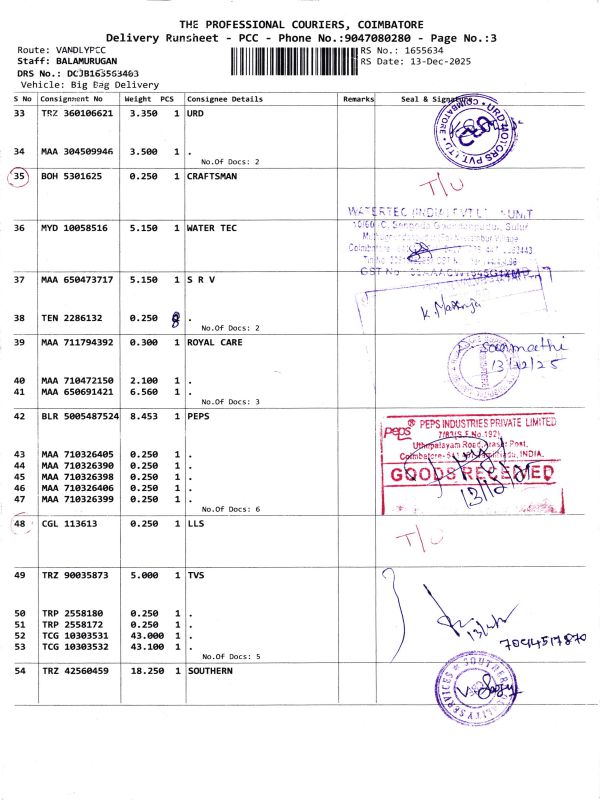 THE PROFESSIONAL COURIERS, COIMBATORE
Delivery Runsheet - PCC - Phone No.:9047080280 - Page No.:3
Route: VANDLYPCC
RS No.: 1655634
Staff: BALAMURUGAN
RS Date: 13-Dec-2025
DRS No.: DCJB163563403
Vehicle: Big Bag Delivery
S No Consignment No Weight PCS Consignee Details Remarks Seal & Signature
33 TRZ 360106621 3.350 1 URD
34 MAA 304509946 3.500 1 .
No.Of Docs: 2
35 BOH 5301625 0.250 1 CRAFTSMAN
T/U
36 MYD 10058516 5.150 1 WATER TEC
37 MAA 650473717 5.150 1 S R V
38 TEN 2286132 0.250 .
No.Of Docs: 2
39 MAA 711794392 0.300 1 ROYAL CARE
13/12/25
40 MAA 710472150 2.100 1 .
41 MAA 650691421 6.560 1 .
No.Of Docs: 3
42 BLR 5005487524 8.453 1 PEPS
peps ® PEPS INDUSTRIES PRIVATE LIMITED
43 MAA 710326405 0.250 1 .
44 MAA 710326390 0.250 1 .
45 MAA 710326398 0.250 1 .
46 MAA 710326406 0.250 1 .
47 MAA 710326399 0.250 1 .
GOODS RECEIVED
No.Of Docs: 6
48 CGL 113613 0.250 1 LLS
T/U
49 TRZ 90035873 5.000 1 TVS
50 TRP 2558180 0.250 1 .
51 TRP 2558172 0.250 1 .
52 TCG 10303531 43.000 1 .
53 TCG 10303532 43.100 1 .
No.Of Docs: 5
54 TRZ 42560459 18.250 1 SOUTHERN